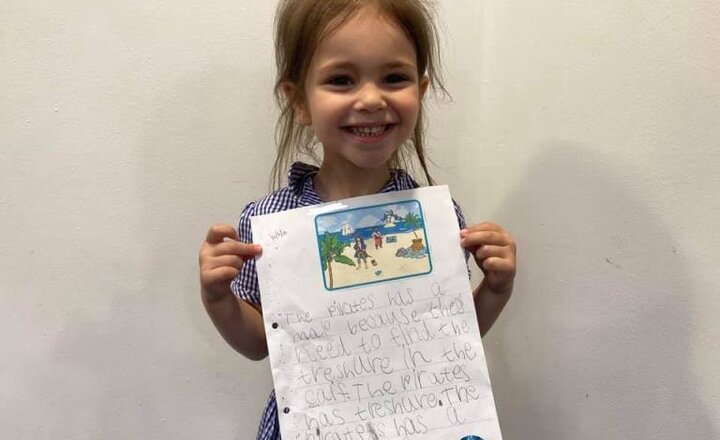 The pirates has a
map because they
need to find the
treshure in the
The pirates
has treshure. The
pirates has a